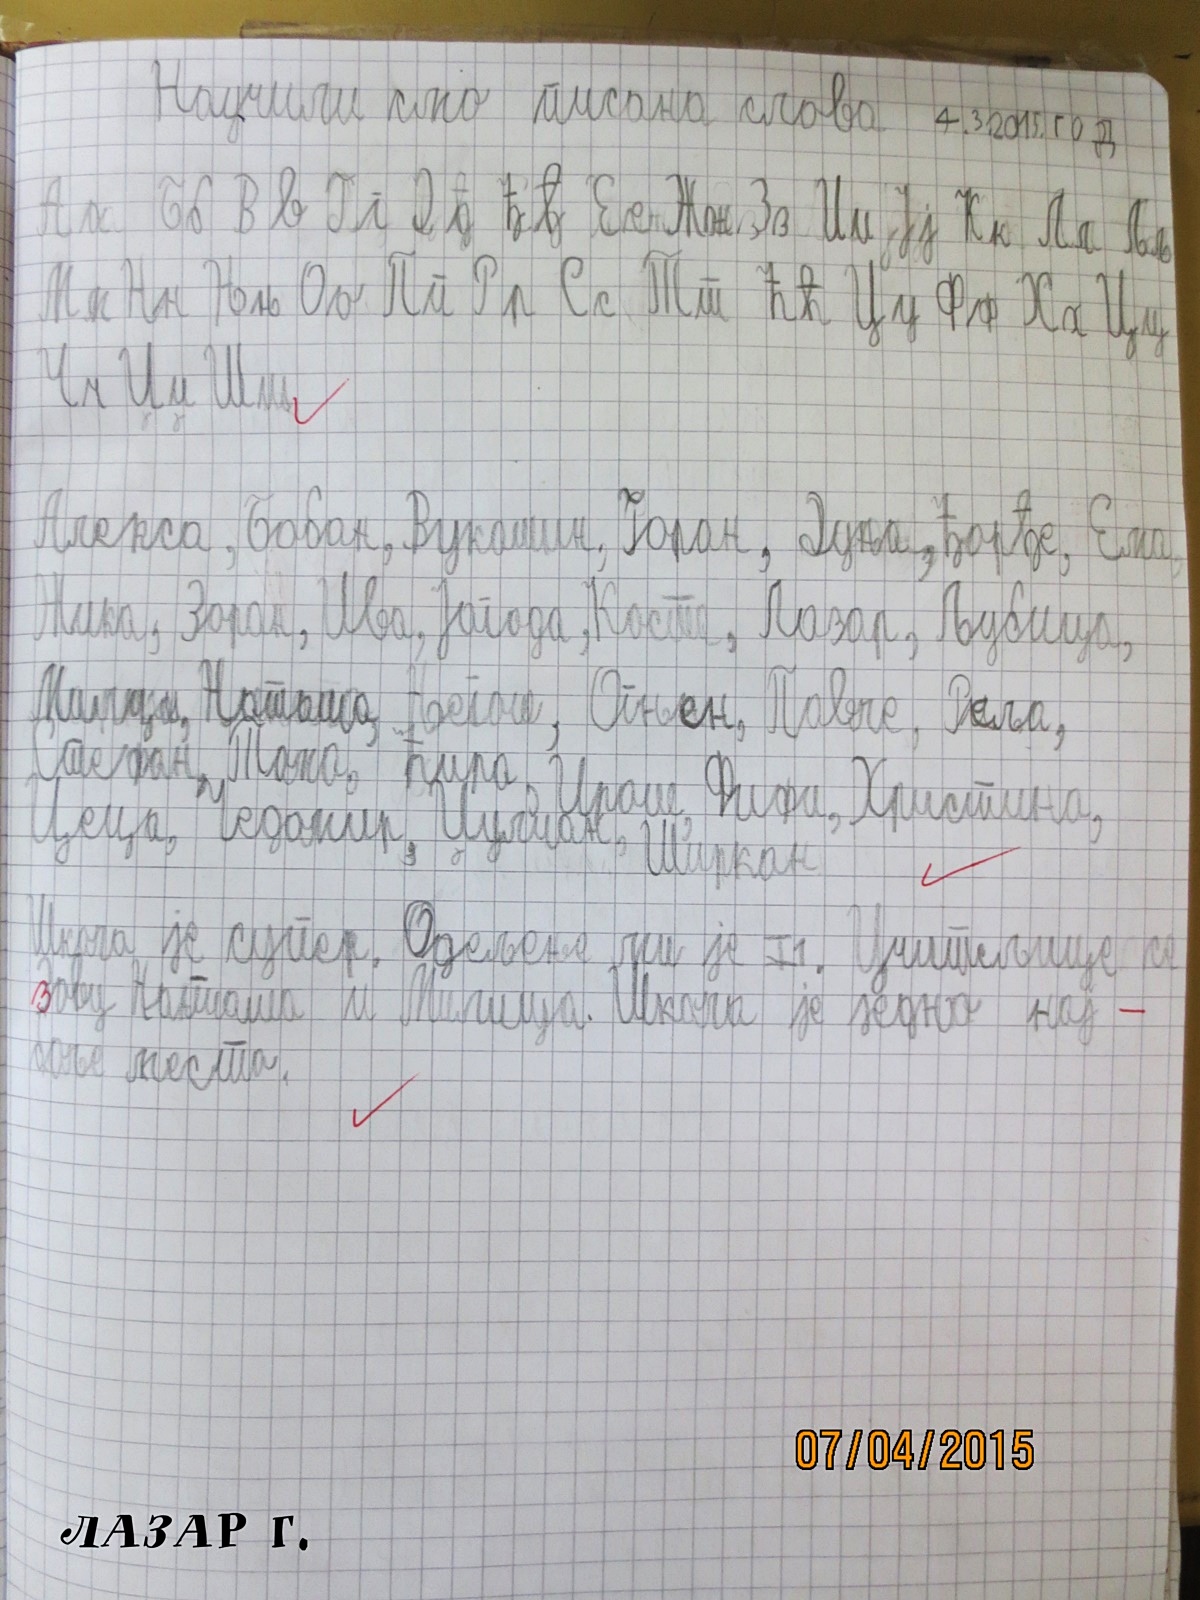 Научили смо писана слова 4.3.2015. ГОД
Аа Бб Вв Гг Дд Ђђ Ее Жж Зз Ии Јј Кк Лл Љљ
Мм Нн Њњ Оо Пп Рр Сс Тт Ћћ Уу Фф Хх Цц
Чч Џџ Шш
Алекса, Бобан, Вукашин, Горан, Дуња, Ђорђе, Ема,
Жика, Зоран, Ива, Јагода, Коста, Лазар, Љубица,
Милица, Наташа, Његош, Огњен, Павле, Реља,
Стефан, Тома, Ћира, Урош, Фифи, Христина,
Цеца, Чедомир, Џулијан, Ширкан
Школа је супер. Одељење ми је II1. Учитељице се
зову Наташа и Милица. Школа је једно нај-
боље места.
07/04/2015
ЛАЗАР Г.